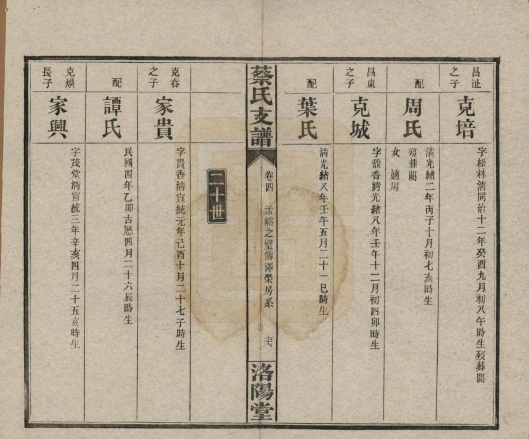 昌沚之子
克培
字松林清同治十二年癸酉九月初八午時生歿葬闕
配
周氏
清光緒二年丙子十月初七亥時生
歿葬闕
女 適周
昌東之子
克城
字馥香清光緒八年壬午十二月初四卯時生
配
葉氏
清光緒八年壬午五月二十一巳時生
蔡氏支譜
卷四
洛陽堂
二十世
克春之子
家貴
字貴香清宣統元年己酉十月二十七子時生
配
譚氏
民國四年乙卯古歷四月二十六辰時生
克煐長子
家興
字茂堂清宣統三年辛亥四月二十五亥時生